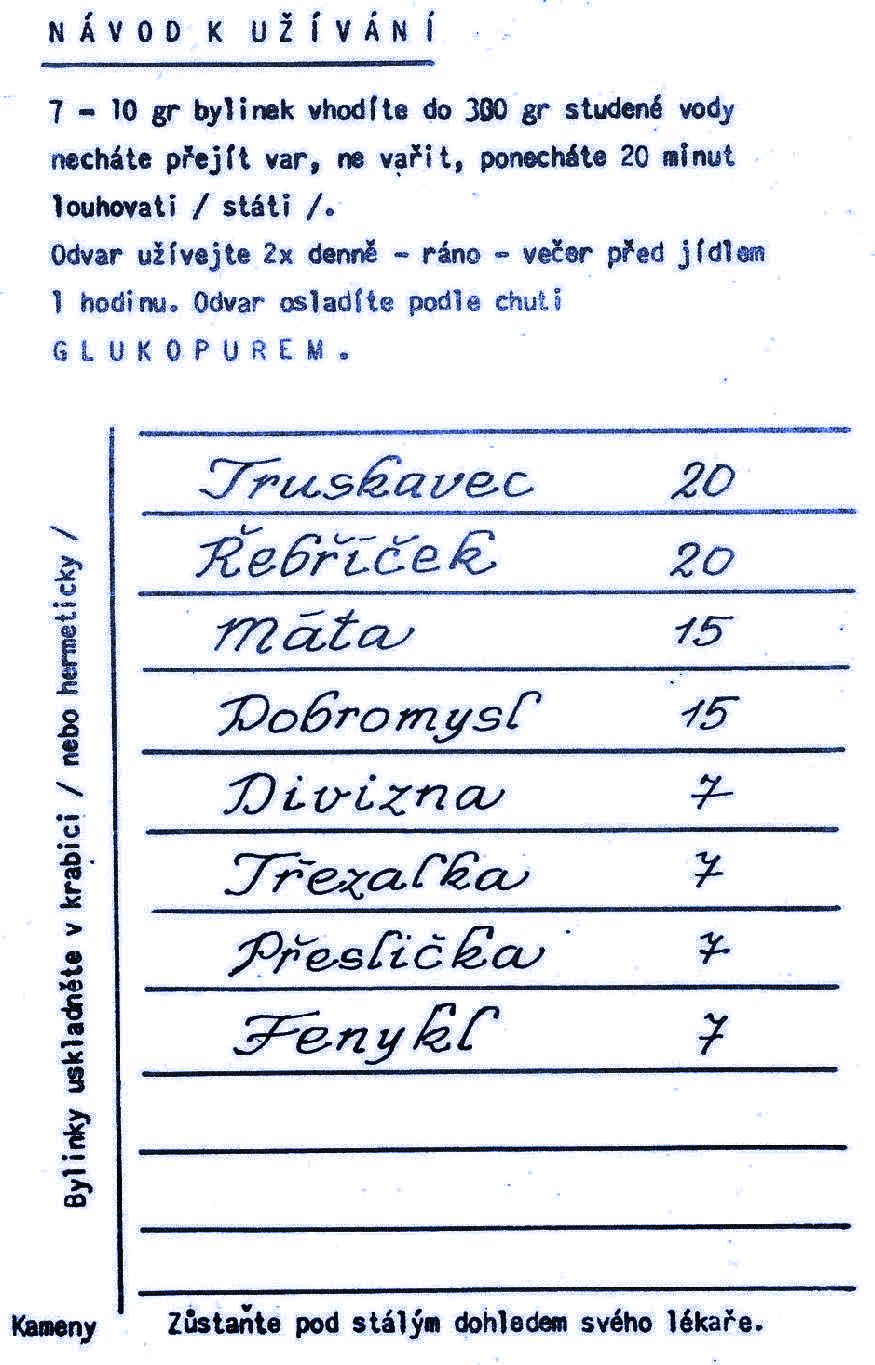 NÁVOD K UŽÍVÁNÍ
7 - 10 gr bylinek vhodíte do 300 gr studené vody
necháte přejít var, ne vařit, ponecháte 20 minut
louhovati / státi /.
Odvar užívejte 2x denně - ráno - večer před jídlem
1 hodinu. Odvar osladíte podle chuti
GLUKOPUREM.
Truskavec 20
Řebříček 20
Máta 15
Dobromysl 15
Divizna 7
Třezalka 7
Přeslička 7
Fenykl 7
Bylinky uskladněte v krabici / nebo hermeticky /
Kameny Zůstaňte pod stálým dohledem svého lékaře.